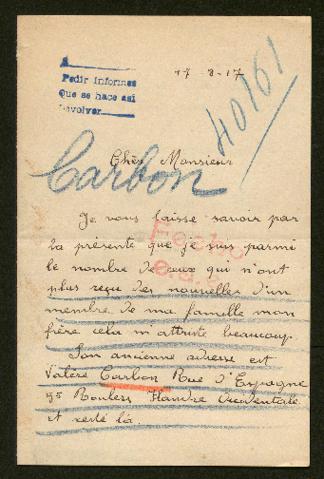 A
Pedir informes
Que se hace asi
Devolver
17-8-17
40161
Cher Monsieur
Carbon
Je vous laisse savoir par
la présente que je suis parmi
le nombre de ceux qui n'ont
plus reçu des nouvelles d'un
membre de ma famelle mon
frère cela m'attriste beaucoup.
Son ancienne adresse est
Valère Carbon Rue d'Espagne
95 Roulers Flandre Occidentale
et resté là.